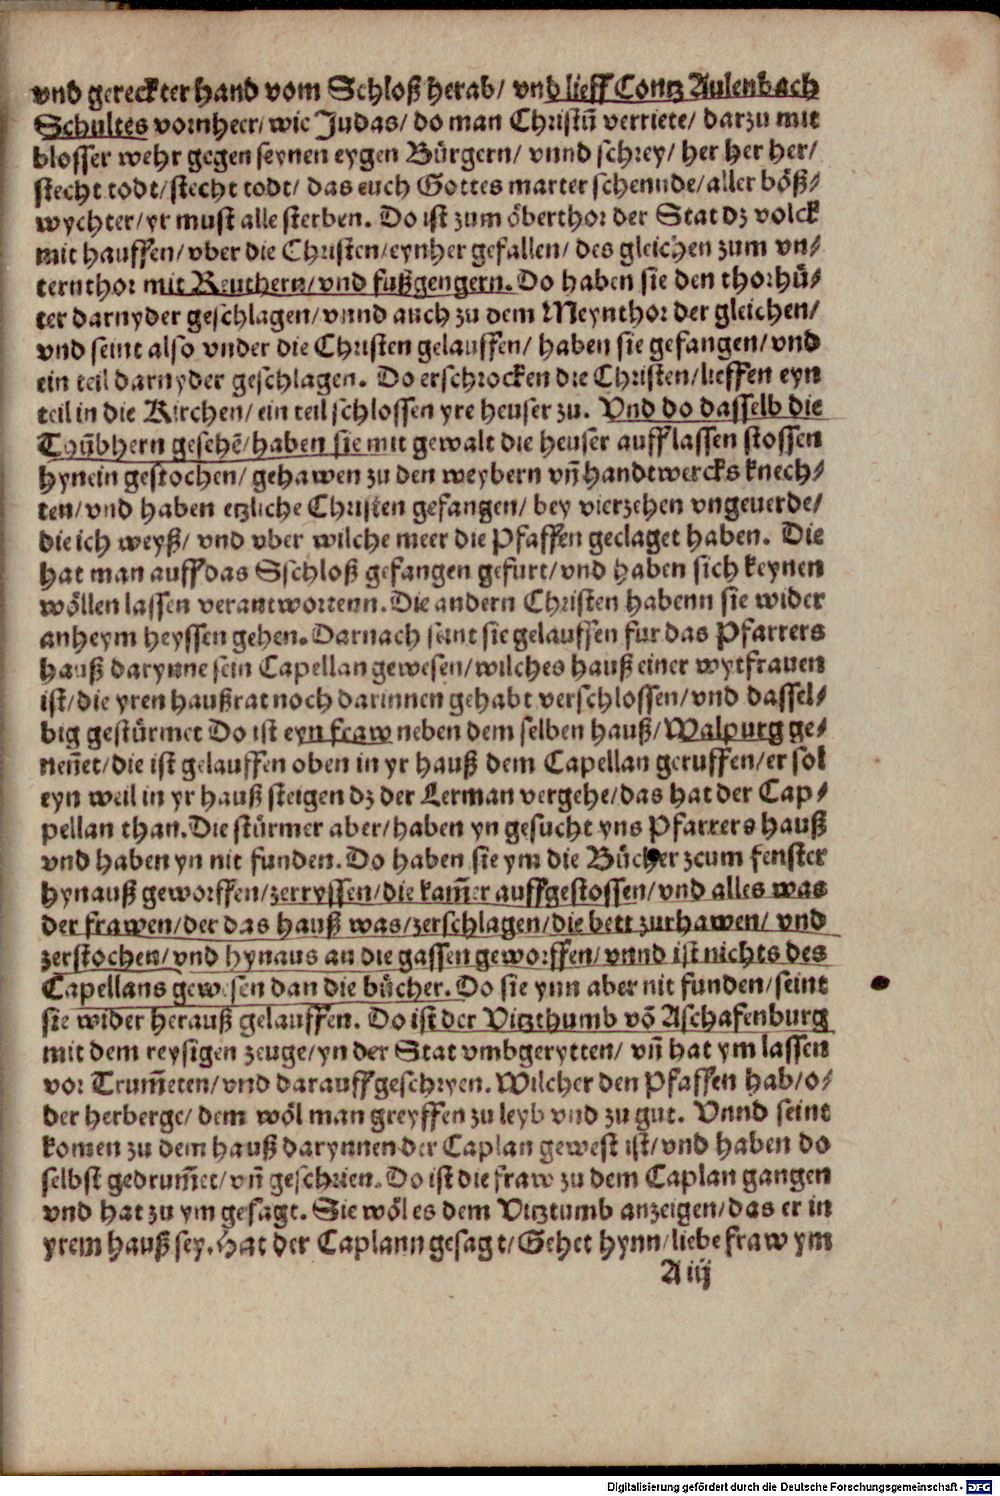 vnd gereckter hand vom Schloß herab/ vnd lieff Contz Aulenbach
Schultes vornheer/ wie Judas/ do man Christū verriete/ darzu mit
blosser wehr gegen seynen eygen Bürgern/ vnnd schrey/ her her her/
stecht todt/ stecht todt/ das euch Gottes marter schennde/ aller böß⸗
wychter/ yr must alle sterben. Do ist zum öberthor der Stat dz volck
mit hauffen/ vber die Christen/ eynher gefallen/ des gleichen zum vn⸗
ternthor mit Reuthern/ vnd fußgengern. Do haben sie den thorhü⸗
ter darnyder geschlagen/ vnnd auch zu dem Meynthor der gleichen/
vnd seint also vnder die Christen gelauffen/ haben sie gefangen/ vnd
ein teil darnyder geschlagen. Do erschrocken die Christen/ lieffen eyn
teil in die Kirchen/ ein teil schlossen yre heuser zu. Vnd do dasselb die
Toūbhern gesehē/ haben sie mit gewalt die heuser aufflassen stossen
hynein gestochen/ gehawen zu den weybern vn̄ handtwercks knech⸗
ten/ vnd haben etzliche Christen gefangen/ bey vierzehen vngeuerde/
die ich weyß/ vnd vber wilche meer die Pfaffen geclaget haben. Die
hat man auff das Sschloß gefangen gefurt/ vnd haben sich keynen
wöllen lassen verantwortenn. Die andern Christen habenn sie wider
anheym heyssen gehen. Darnach seint sie gelauffen fur das Pfarrers
hauß darynne sein Capellan gewesen/ wilches hauß einer wytfrauen
ist/ die yren haußrat noch darinnen gehabt verschlossen/ vnd dassel⸗
big gestürmet Do ist eyn fraw neben dem selben hauß/ Walpurg ge⸗
nen̄et/ die ist gelauffen oben in yr hauß dem Capellan geruffen/ er sol
eyn weil in yr hauß steigen dz der Lerman vergehe/ das hat der Cap⸗
pellan than. Die stürmer aber/ haben yn gesucht yns Pfarrers hauß
vnd haben yn nit funden. Do haben sie ym die Bücher zcum fenster
hynauß geworffen/ zerryssen/ die kam̄er auffgestossen/ vnd alles was
der frawen/ der das hauß was/ zerschlagen/ die bett zurhawen/ vnd
zerstochen/ vnd hynaus an die gassen geworffen/ vnnd ist nichts des
Capellans gewesen dan die bücher. Do sie ynn aber nit funden/ seint
sie wider herauß gelauffen. Do ist der Vitzthumb vō Aschafenburg
mit dem reysigen zeuge/ yn der Stat vmbgerytten/ vn̄ hat ym lassen
vor Trum̄eten/ vnd darauff geschryen. Wilcher den Pfaffen hab/ o⸗
der herberge/ dem wöl man greyffen zu leyb vnd zu gut. Vnnd seint
komen zu dem hauß darynnen der Caplan gewest ist/ vnd haben do
selbst gedrum̄et/ vn̄ geschrien. Do ist die fraw zu dem Caplan gangen
vnd hat zu ym gesagt. Sie wöl es dem Vitztumb anzeigen/ das er in
yrem hauß sey. Hat der Caplann gesagt/ Gehet hynn/ liebe fraw ym
A iij
Digitalisierung gefördert durch die Deutsche Forschungsgemeinschaft - DFG